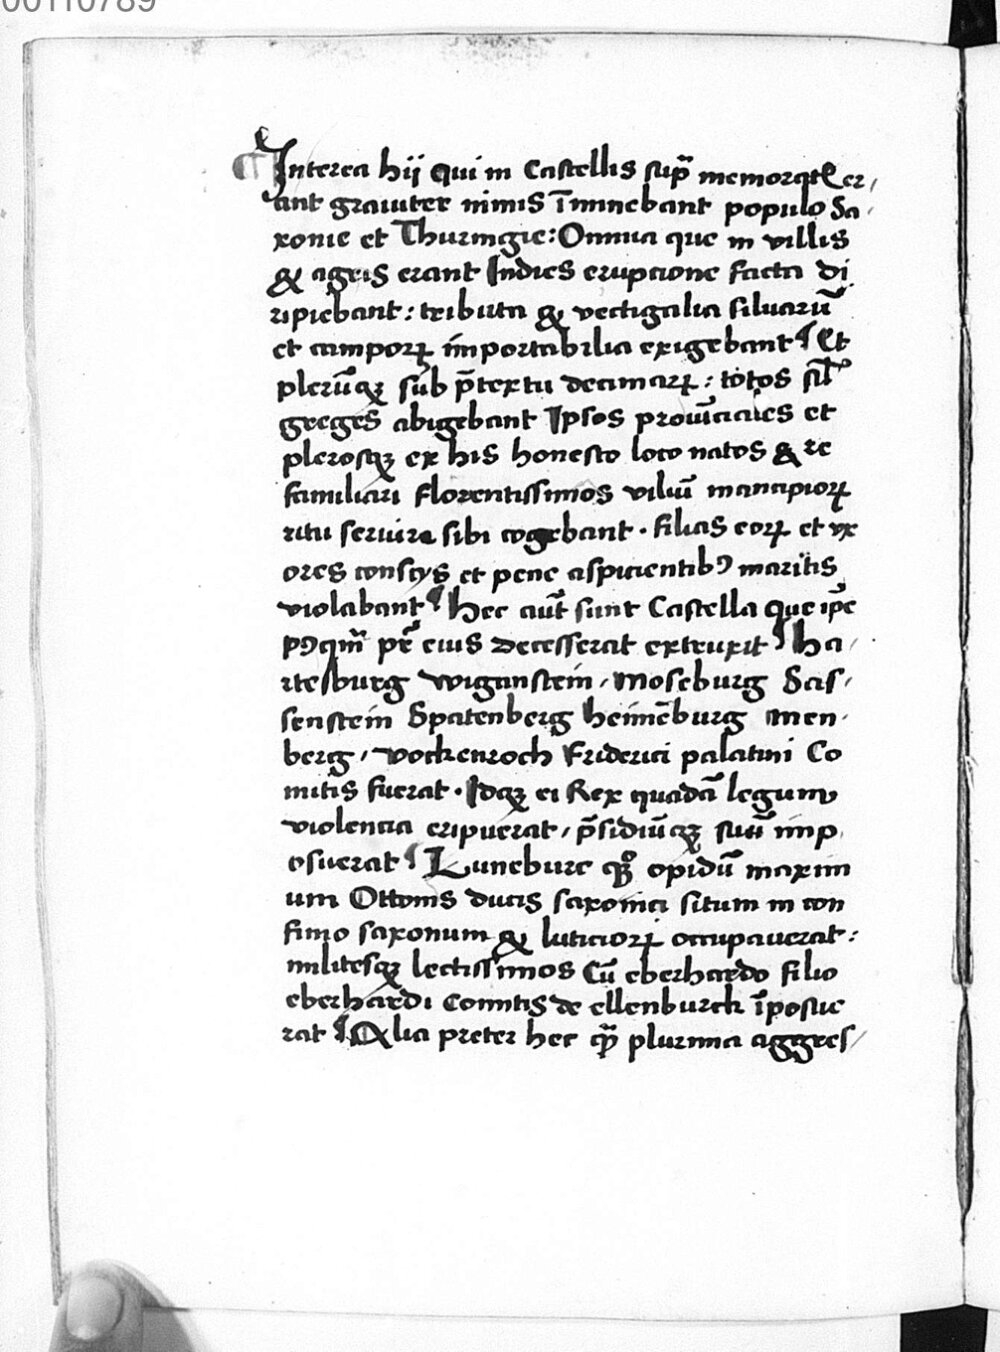 00110789
Interea hij qui in Castellis sup̄ memoratꝭ er,
ant grauiter nimis īminebant populo Sa,
xonie et Thuringie: Omnia que in villis
& agris erant Indies erupcione facta di
ripiebant: tributa & vectigalia siluarū
et camporꝝ importabilia exigebant Et
plerūqꝫ sub p̄textu decimarꝝ: totos sil̄
greges abigebant Ipsos prouīciales et
plerosqꝫ ex his honesto loco natos & re
familiari florentissimos viliū mancipiorꝝ
ritu seruire sibi cogebant. filias eorꝝ et vx
ores conscijs et pene aspicientibꝰ maritis
violabant Hec aūt sunt Castella que ip̄e
pꝰqm̄ pr̄ eius decesserat extruxit Ha,
rtesburg wiganstein, Moseburg Sas,
senstein Spatenberg heimēburg Men,
berg, vockenroch Friderici palatini Co
mitis fuerat. Idqꝫ ei Rex quadā legum
violencia eripuerat, p̄sidiūqꝫ suū imp,
osuerat Luneburc qꝫ opidū maxim
um Ottonis ducis saxonici situm in con
finio saxonum & luticiorꝝ occupauerat:
militesqꝫ lectissimos Cū eberhardo filio
eberhardi Comitis de ellenburck īposue
rat Alia preter hec qꝫ plurima aggres,